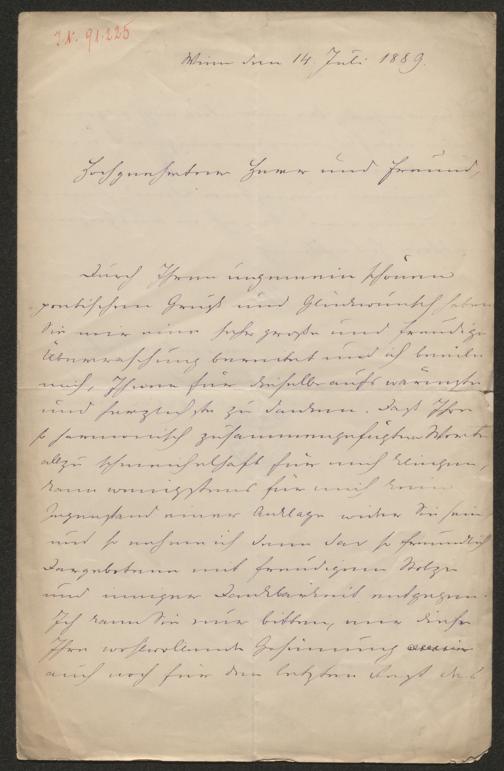 J.N. 91.225
Wien den 14. Juli 1889.
Hochgeehrter Herr und Freund,
Durch Ihren ungemein schönen
poetischen Gruß und Glückwunsch haben
Sie mir eine sehr große und freudige
Überraschung bereitet und ich beeile
mich, Ihnen für dieselbe aufs wärmste
und herzlichste zu danken. Daß Ihre
so harmonisch zusammengefügten Worte
allzu schmeichelhaft für mich klingen,
kann wenigstens für mich kein
Gegenstand einer Anklage wider Sie sein
und so nehme ich denn das so freundlich
Dargebotene mit freudigem Stolze
und inniger Dankbarkeit entgegen.
Ich kann Sie nur bitten, mir diese
Ihre wohlwollende Gesinnung
auch noch für den letzten Rest des